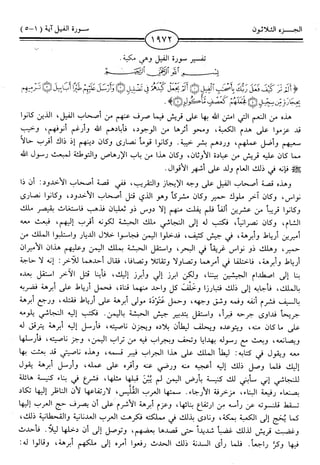 الجزء الثلاثون
سورة الفيل آية (١-٥)
١٩٧٢
تفسير سورة الفيل وهي مكية.
بسم الله الرحمن الرحيم
﴿ألم تر كيف فعل ربك بأصحاب الفيل ۝ ألم يجعل كيدهم في تضليل ۝ وأرسل عليهم طيرا أبابيل ۝ ترميهم
بحجارة من سجيل ۝ فجعلهم كعصف مأكول ۝﴾.
هذه من النعم التي امتن الله بها على قريش فيما صرف عنهم من أصحاب الفيل، الذين كانوا
قد عزموا على هدم الكعبة، ومحو أثرها من الوجود، فأبادهم الله وأرغم أنوفهم، وخيب
سعيهم وأضل عملهم، وردهم بشر خيبة. وكانوا قوماً نصارى وكان دينهم إذ ذاك أقرب حالاً
مما كان عليه قريش من عبادة الأوثان، وكان هذا من باب الإرهاص والتوطئة لمبعث رسول الله
ﷺ فإنه في ذلك العام ولد على أشهر الأقوال.
وهذه قصة أصحاب الفيل على وجه الإيجاز والتقريب، ففي قصة أصحاب الأخدود: أن ذا
نواس، وكان آخر ملوك حمير وكان مشركاً وهو الذي قتل أصحاب الأخدود، وكانوا نصارى
وكانوا قريباً من عشرين ألفاً فلم يفلت منهم إلا دوس ذو ثعلبان فذهب فاستغاث بقيصر ملك
الشام، وكان نصرانياً، فكتب له إلى النجاشي ملك الحبشة لكونه أقرب إليهم، فبعث معه
أميرين أرياط وأبرهة، في جيش كثيف، فدخلوا اليمن فجاسوا خلال الديار واستلبوا الملك من
حمير، وهلك ذو نواس غريقاً في البحر، واستقل الحبشة بملك اليمن وعليهم هذان الأميران
أرياط وأبرهة، فاختلفا في أمرهما وتصاولا وتقاتلا وتصافا، فقال أحدهما للآخر: إنه لا حاجة
بنا إلى اصطدام الجيشين بيننا، ولكن ابرز إلي وأبرز إليك، فأينا قتل الآخر استقل بعده
بالملك، فأجابه إلى ذلك فتبارزا وخلف كل واحد منهما قناة، فحمل أرياط على أبرهة فضربه
بالسيف فشرم أنفه وفمه وشق وجهه، وحمل عتودة مولى أبرهة على أرياط فقتله، ورجع أبرهة
جريحاً فداوى جرحه فبرأ، واستقل بتدبير جيش الحبشة باليمن. فكتب إليه النجاشي يلومه
على ما كان منه، ويتوعده ويحلف ليطأن بلاده ويجزن ناصيته، فأرسل إليه أبرهة يترقق له
ويصانعه، وبعث مع رسوله بهدايا وتحف وبجراب فيه من تراب اليمن، وجز ناصيته، فأرسلها
معه ويقول في كتابه: ليطأ الملك على هذا الجراب فيبر قسمه، وهذه ناصيتي قد بعثت بها
إليك فلما وصل ذلك إليه أعجبه منه ورضي عنه وأقره على عمله، وأرسل أبرهة يقول
للنجاشي إني سأبني لك كنيسة بأرض اليمن لم يُبنَ قبلها مثلها، فشرع في بناء كنيسة هائلة
بصنعاء رفيعة البناء، مزخرفة الأرجاء. سمتها العرب القُلَّيس، لارتفاعها لأن الناظر إليها تكاد
تسقط قلنسوته عن رأسه من ارتفاع بنائها، وعزم أبرهة الأشرم على أن يصرف حج العرب إليها
كما يحج إلى الكعبة بمكة، ونادى بذلك في مملكته فكرهت العرب العدنانية والقحطانية ذلك،
وغضبت قريش لذلك غضباً شديداً حتى قصدها بعضهم، وتوصل إلى أن دخلها ليلاً. فأحدث
فيها وكرّ راجعاً. فلما رأى السدنة ذلك الحدث رفعوا أمره إلى ملكهم أبرهة، وقالوا له: